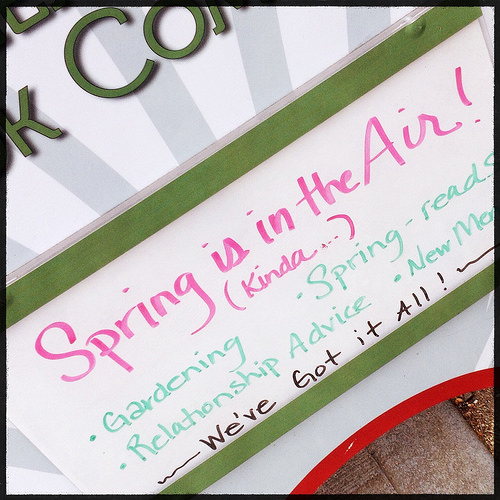 Spring is in the Air!
(Kinda...)
• Gardening • Spring-reads
• Relationship Advice • New
We've Got it All!